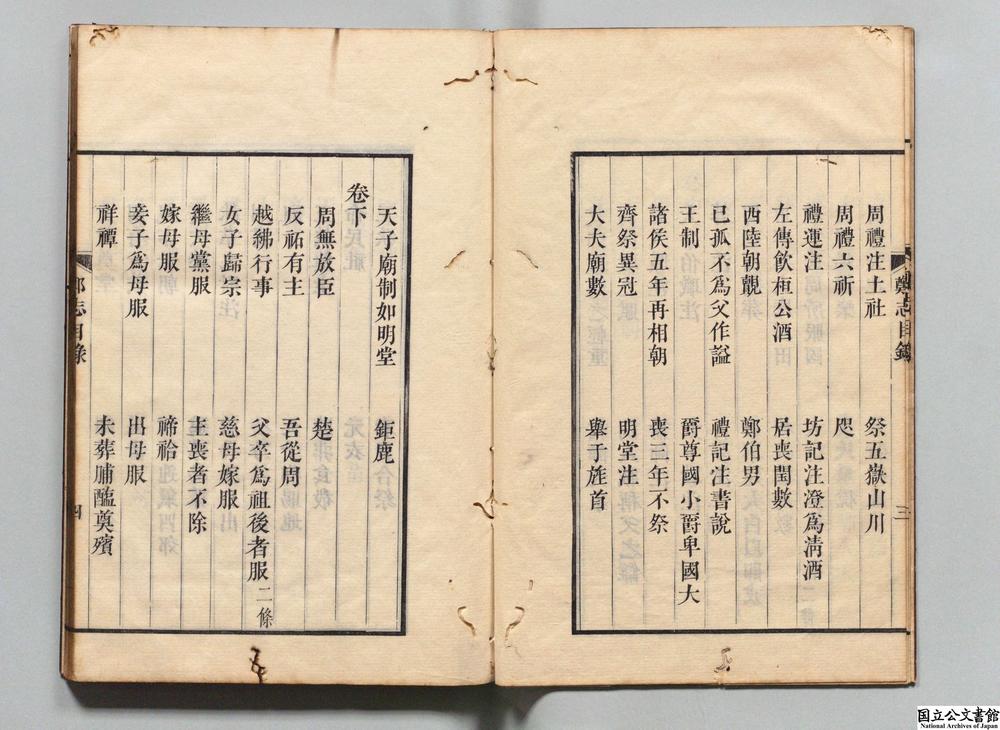 鄭志目錄
三
周禮注土社 祭五嶽山川
周禮六祈 咫
禮運注 坊記注澄爲淸酒
左傳飮桓公酒 居喪閏數
西陸朝覿 鄭伯男
已孤不爲父作謚 禮記注書說
王制 爵尊國小爵卑國大
諸侯五年再相朝 喪三年不祭
齊祭異冠 明堂注
大夫廟數 舉于旌首
天子廟制如明堂 鉅鹿
卷下
周無放臣 楚
反祏有主 吾從周
越紼行事 父卒爲祖後者服二條
女子歸宗 慈母嫁服
繼母黨服 主喪者不除
嫁母服 禘祫
妾子爲母服 出母服
祥禫 未葬脯醢奠殯
鄭志目錄
四
国立公文書館
National Archives of Japan